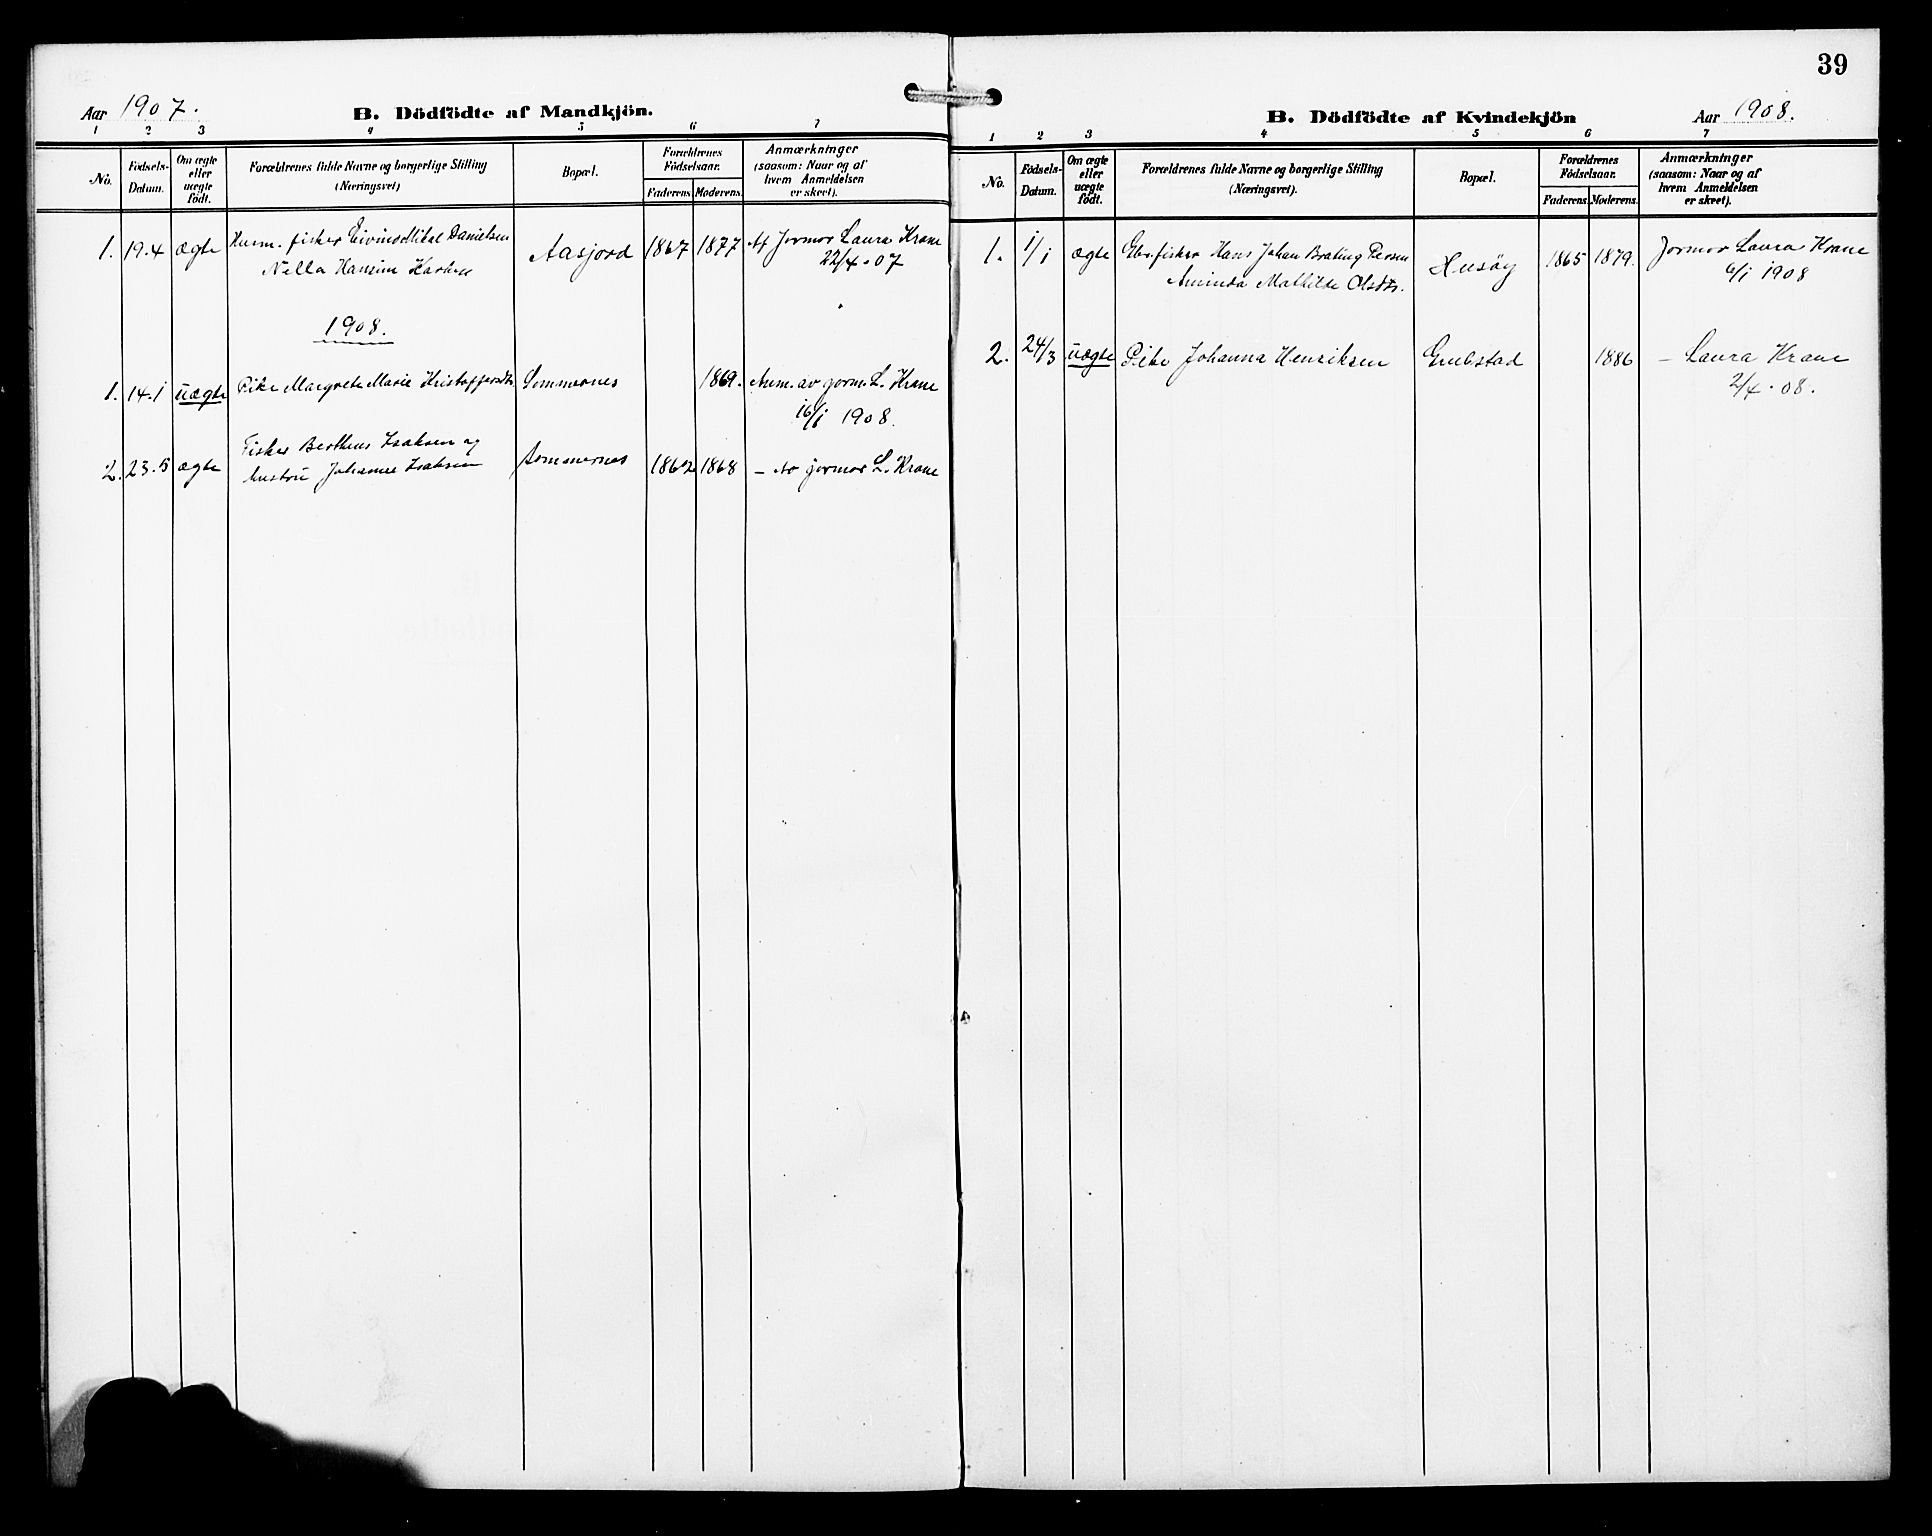 Aar 1907. B. Dödfödte af Mandkjön.
1 2 3 4 5 6 7
No. Födsels-Datum. Om ægte eller uægte födt. Forældrenes fulde Navne og borgerlige Stilling (Næringsvei) Bopæl. Forældrenes Födselsaar. Faderens. Moderens. Anmærkninger (saasom: Naar og af hvem Anmeldelsen er skeet).
1. 19.4 ægte Husm. fisker Eivind Mikal Danielsen Aasjord 1867 1877 Af Jormor Laura Krane
Nella Hansine 22/4-07
1908.
1. 14.1 uægte Pike Margrete Marie Kristoffersdtr. Sommernes 1869. Anm. av jorm. L. Krane
16/1 1908.
Fisker Bertheus Isaksen og
2. 23.5 ægte hustru Johanne Isaksen Sommernes 1862 1868 - Av jormor L. Krane
39
B. Dödfödte af Kvindekjön Aar 1908.
1 2 3 4 5 6 7
No. Födsels-Datum. Om ægte eller uægte födt. Forældrenes fulde Navne og borgerlige Stilling (Næringsvei). Bopæl. Forældrenes Födselsaar. Faderens. Moderens. Anmærkninger (saasom: Naar og af hvem Anmeldelsen er skeet).
1. 1/1 ægte Gbr. fisker Hans Johan Brating Persen Husöy 1865 1879. Jormor Laura Krane
Aminda Mathilde Olsdtr. 6/1 1908
2. 24/3 uægte Pike Johanna Henriksen Grubstad 1886 - Laura Krane
2/4-08.